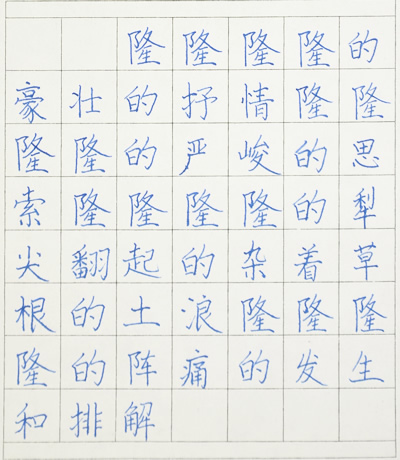 隆隆隆隆的
豪壮的抒情隆隆
隆隆的严峻的思
索隆隆隆隆的犁
尖翻起的杂着草
根的土浪隆隆隆
隆的阵痛的发生
和排解